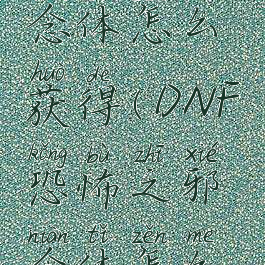 念体怎么
huò de
获得(DNF
kǒng bù zhī xié
恐怖之邪
niàn tǐ zěn me
念体怎么